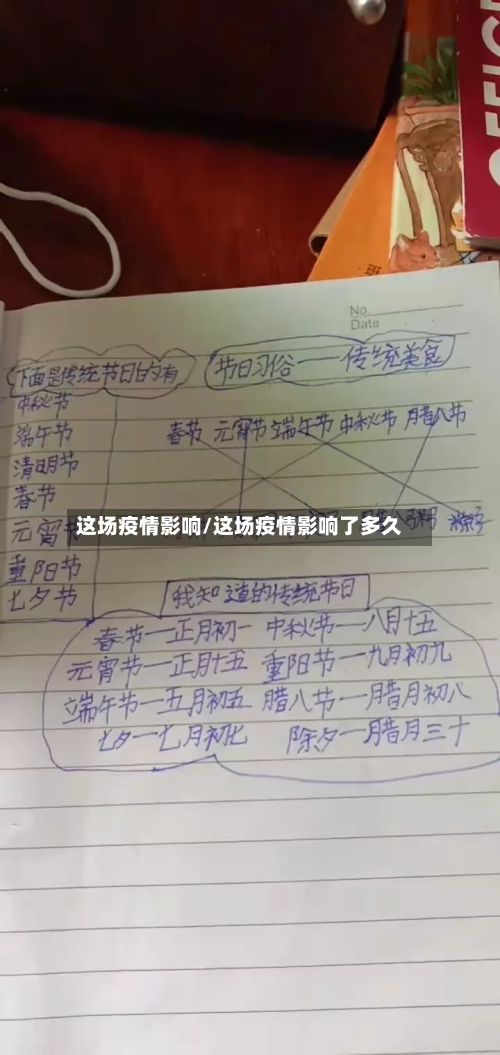 OFFICE
No.
Date
下面是传统节日的有
节日习俗——传统美食
中秋节
端午节
清明节
春节
元宵节
重阳节
七夕节
春节 元宵节 端午节 中秋节 腊八节
粥 粽子
这场疫情影响/这场疫情影响了多久
我知道的传统节日
春节—正月初一 中秋节—八月十五
元宵节—正月十五 重阳节—九月初九
端午节—五月初五 腊八节—腊月初八
七夕—七月初七 除夕—腊月三十